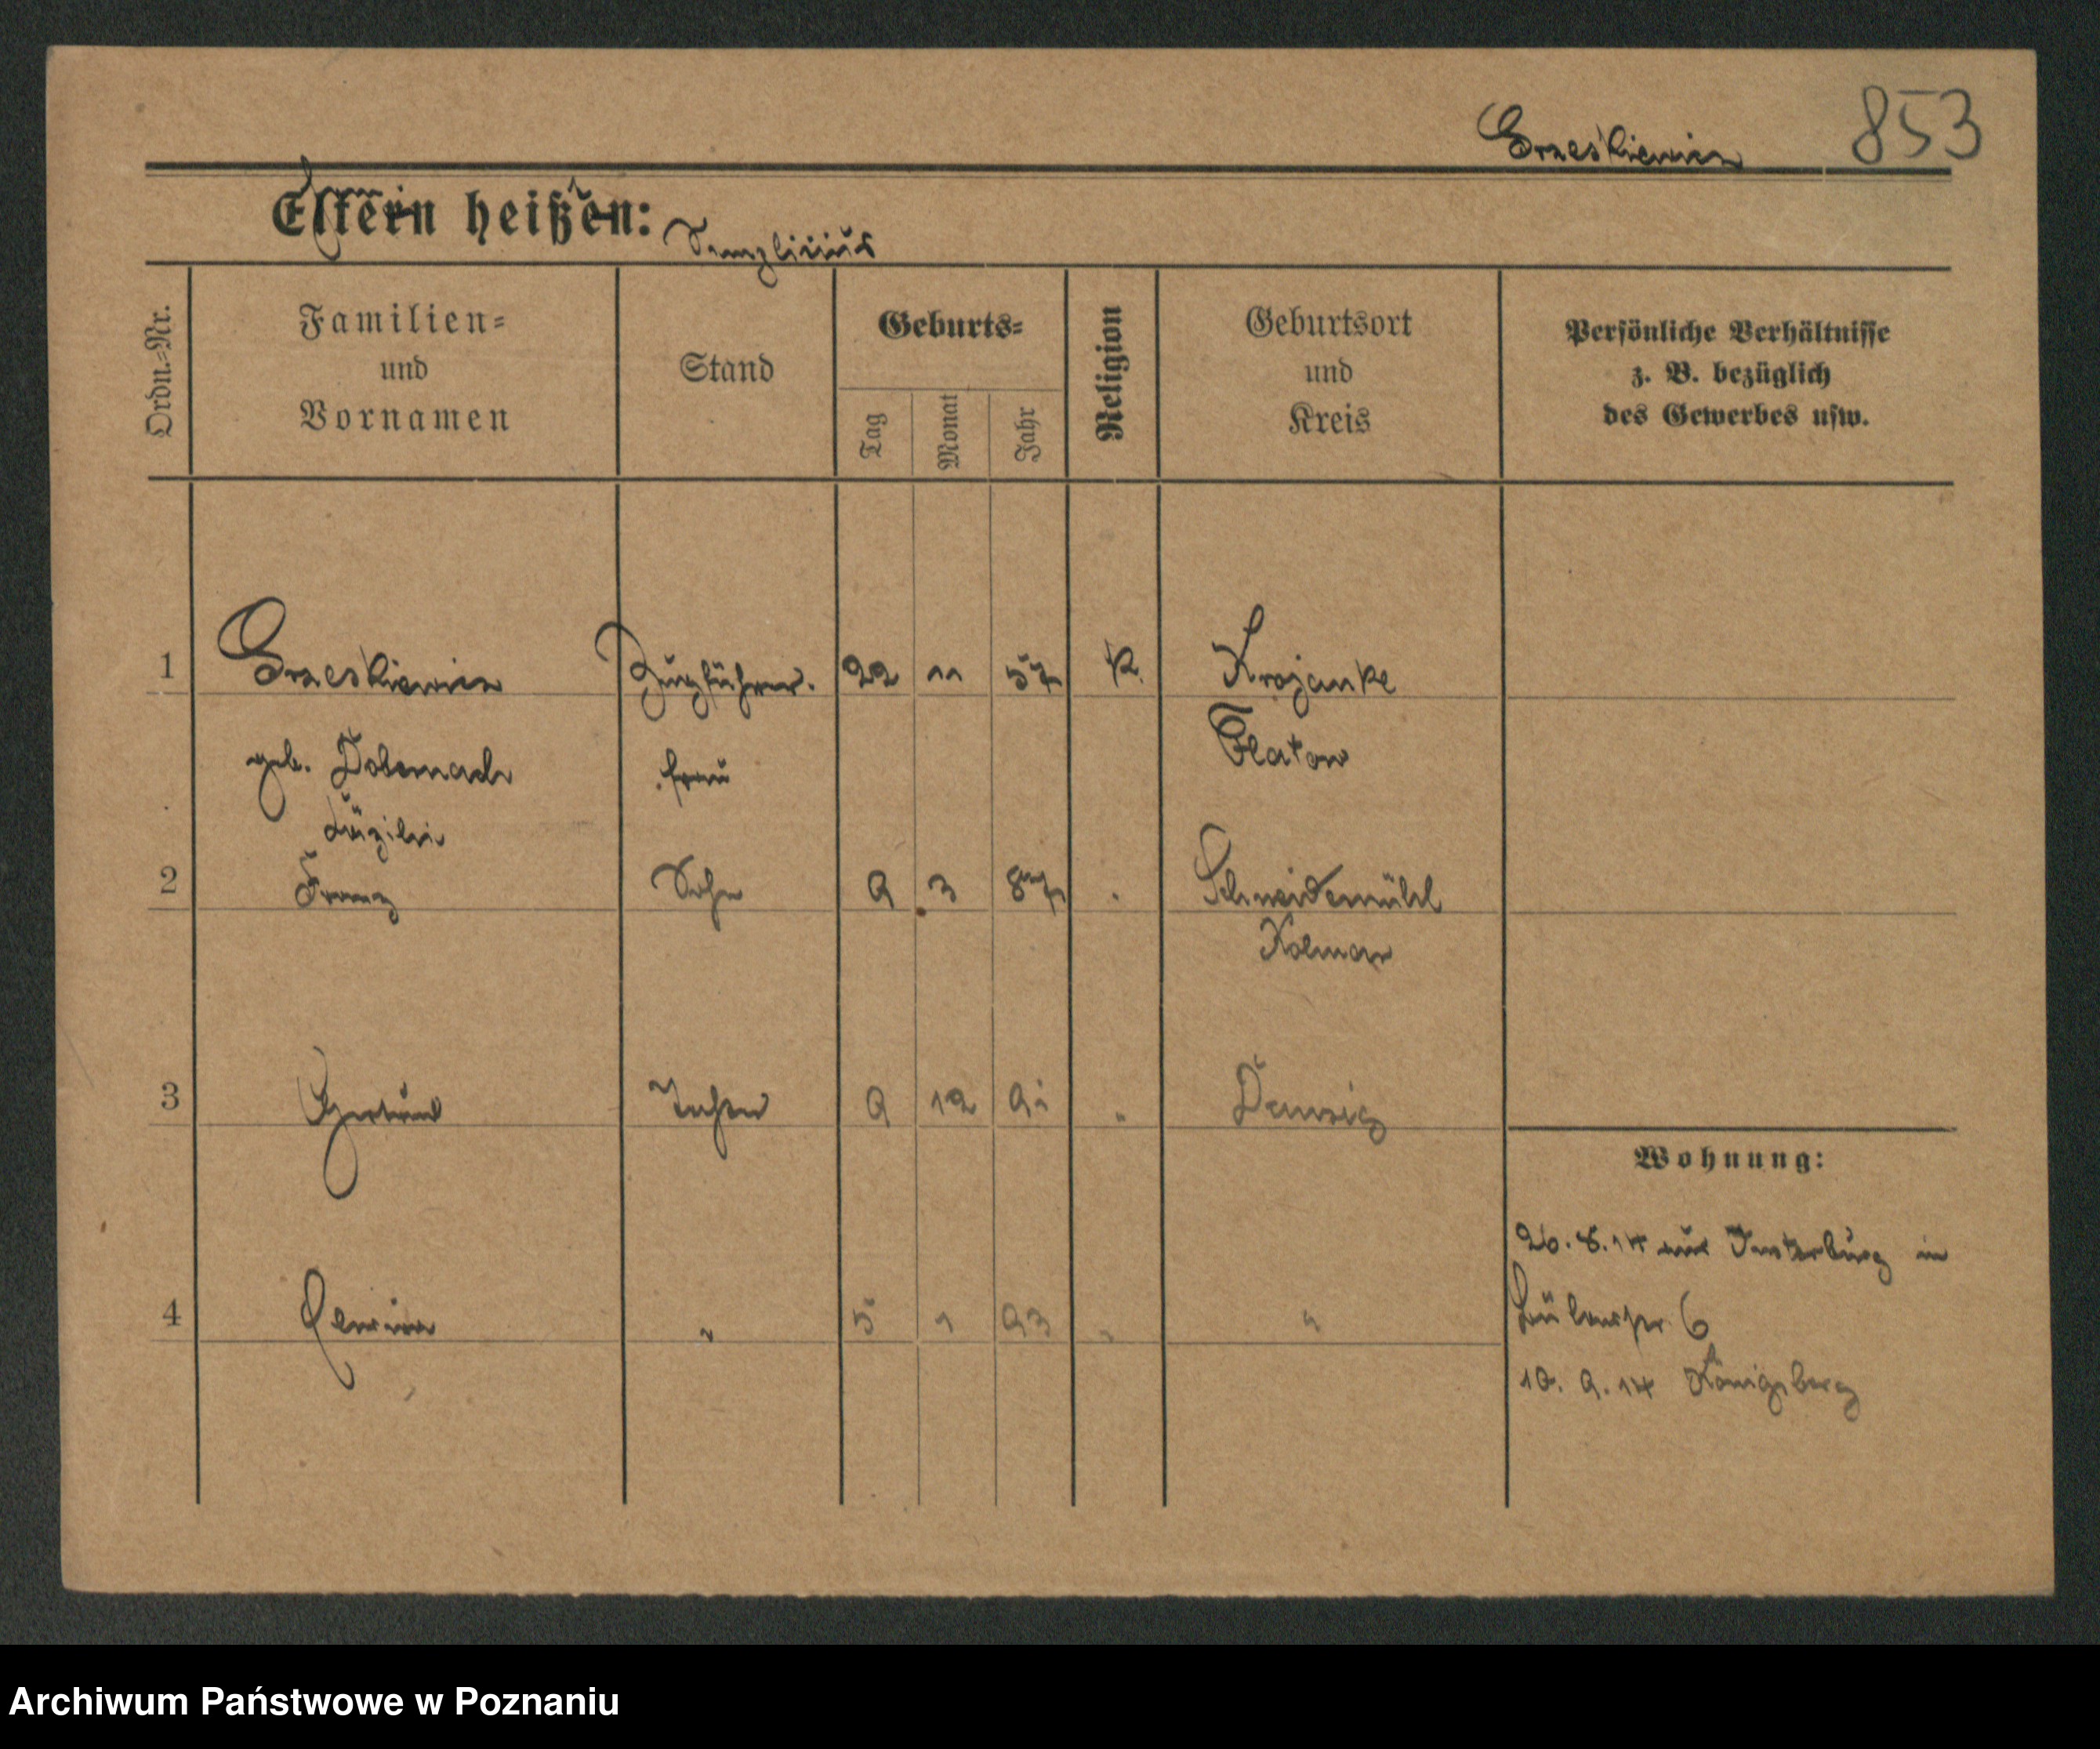 Grzeskiewicz 853
Eltern heißen:
Ordn.-Nr.
Familien-
und
Vornamen
Stand
Geburts-
Tag
Monat
Jahr
Religion
Geburtsort
und
Kreis
Persönliche Verhältnisse
z. B. bezüglich
des Gewerbes usw.
1 Grzeskiewicz Zugführer. 22 11 57 K. Krojanke
geb. frau Flatow
2 Franz Sohn 9 3 87 Schneidemühl
Kolmar
3 Gertrud Tochter 9 12 91 " Danzig
Wohnung:
4 " 5 1 93 " "
26.8.14 aus Insterburg in
6
10. 9. 14 Königsberg
Archiwum Państwowe w Poznaniu